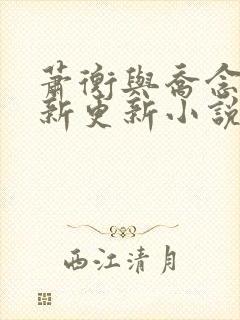 蕭衡與喬念
新更新小說
西江清月